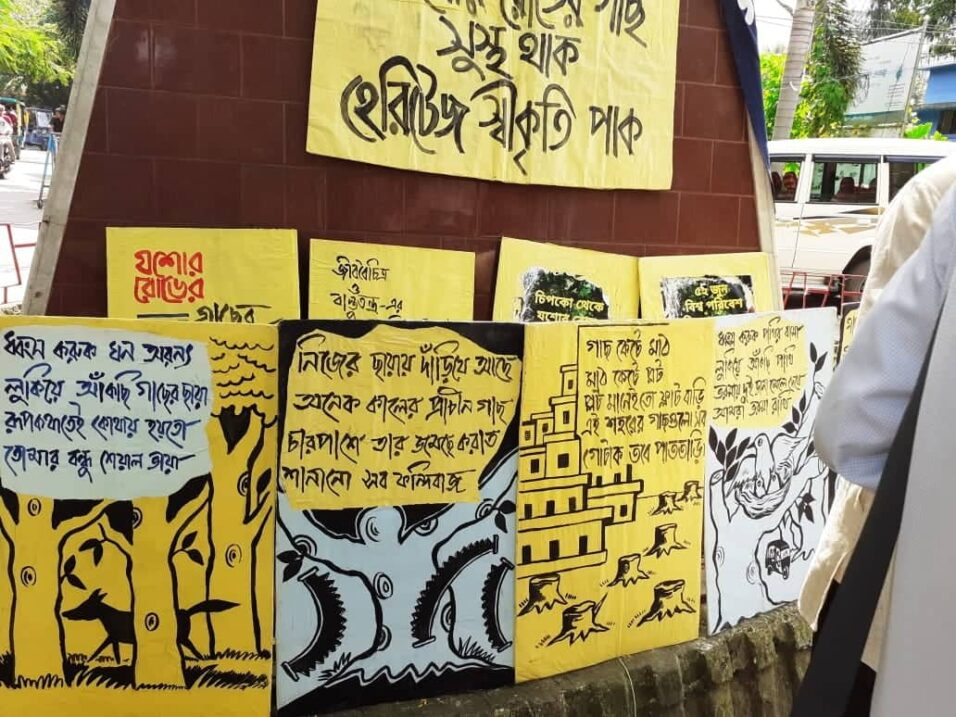 রোডের গাছ
সুস্থ থাক
হেরিটেজ স্বীকৃতি পাক
যশোর
রোডের
গাছের
জীববৈচিত্র
ও
বাস্তুতন্ত্র-এর
চিপকো থেকে
যশোর
৫ই জুন
বিশ্ব পরিবেশ
ধ্বংস করুক ঘন অরন্য
লুকিয়ে আঁকছি গাছের ছায়া
রূপকথাতেই কোথায় হয়তো
তোমার বন্ধু শেয়াল ভায়া
নিজের ছায়ায় দাঁড়িয়ে আছে
অনেক কালের প্রাচীন গাছ
চারপাশে তার জমেছে করাত
শানানো সব ফন্দিবাজ
গাছ কেটে মাঠ
মাঠ কেটে প্লট
প্লট মানেই তো ফ্ল্যাট বাড়ি
এই শহরের গাছগুলো সব
গোটাক তবে পাততাড়ি
ধ্বংস করুক পাখির বাসা
লুকিয়ে আঁকছি পাখি